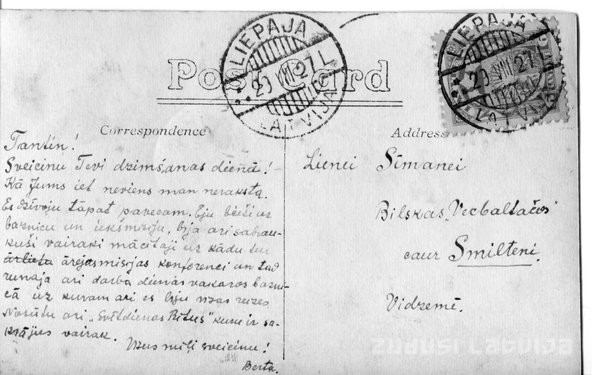 LIEPAJA
29 VIII 27 L
LATVIJA
LIEPAJA
29 VIII 27 L
LATVIJA
Post Card
Correspondence
Address
Tantiņ!
Sveicinu Tevi dzimšanas dienā!
Kā Jums iet neviens man neraksta.
Es dzīvoju tāpat pavecam. Eju bieži uz
baznicu un ieksmisiju, bija ari sabrau-
kuši vairaki mācitāji uz kādu tur
ārejasmisijas konferenci un tad
runaja ari darba dienās vakaros bazni-
cā uz kuram ari es biju visas reizes
Nosūtu ari „Svētdienas Rītus" kuri ir sa-
krājies vairak.
Visus mīļi sveicinu!
Berta.
Lienei Sīmanei
Bilskas „Vecbaltačos"
caur Smilteni,
Vidzemē.
ZUDUSI LATVIJA